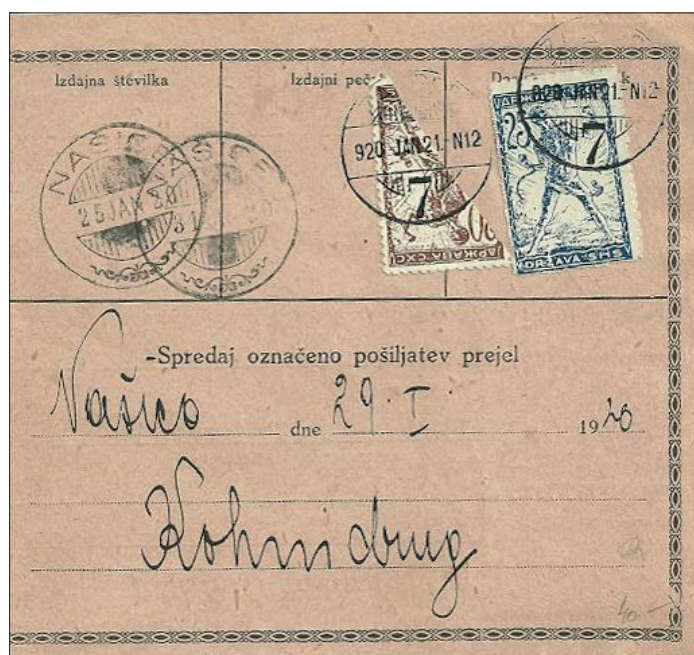 Izdajna številka
Izdajni peč
k
NAŠICE
25 JAN 20
31
NAŠICE
20
920 JAN 21 - N12
7
920 JAN 21 - N12
7
25
DRŽAVA-SHS
ДРЖАВА-СХС
-Spredaj označeno pošiljatev prejel
Našice dne 29. I. 1920
Kohn i drug
40.-